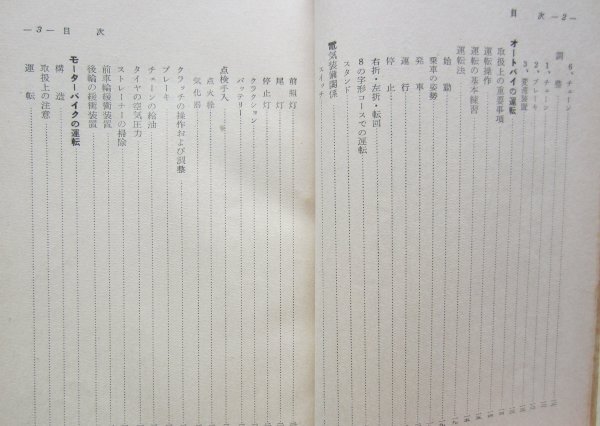 目 次 —2—
6、チェーン
調 整
1、チェーン
2、ブレーキ
3、変速装置
オートバイの運転
取扱上の重要事項
運転操作
運転の基本練習
運転法
始 動
乗車の姿勢
発 車
運 行
停 止
右折・左折・転回
8の字形コースでの運転
スタンド
電気装置関係
スイッチ
—3— 目 次
前照灯
尾 灯
停止灯
クラクション
バッテリー
点検手入
点火栓
気化器
クラッチの操作および調整
ブレーキ
チェーンの給油
タイヤの空気圧力
ストレーナーの掃除
前車輪緩衝装置
後輪の緩衝装置
モーターバイクの運転
構 造
取扱上の注意
運 転